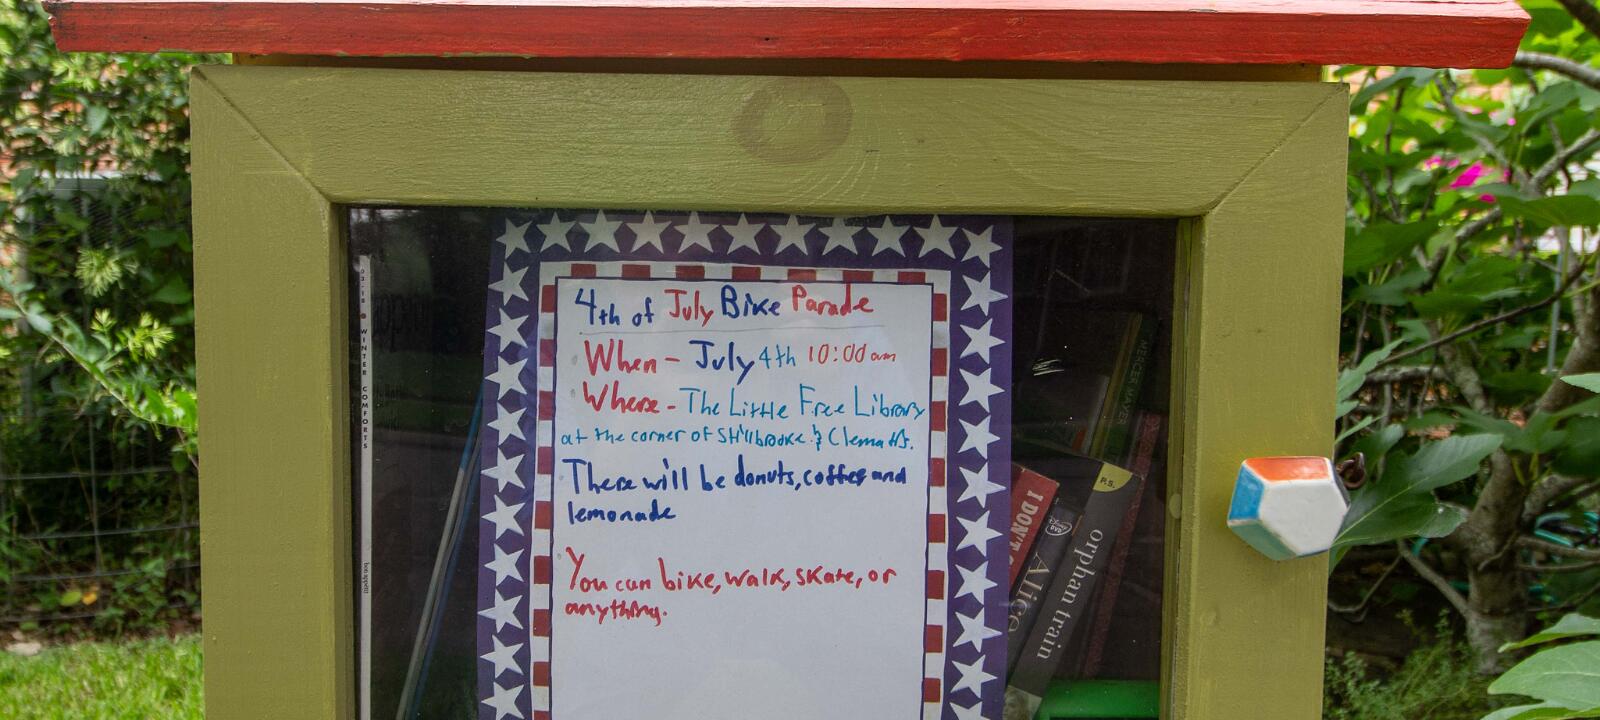 4th of July Bike Parade
When - July 4th 10:00am
Where - The Little Free Library
at the corner of Stillbrooke & Clematis.
There will be donuts, coffee and
lemonade
You can bike, walk, skate, or
anything.
WINTER COMFORTS
bon appétit
MERCER MAYER
I DON'T
Disney DVD
Alice
P.S.
orphan train